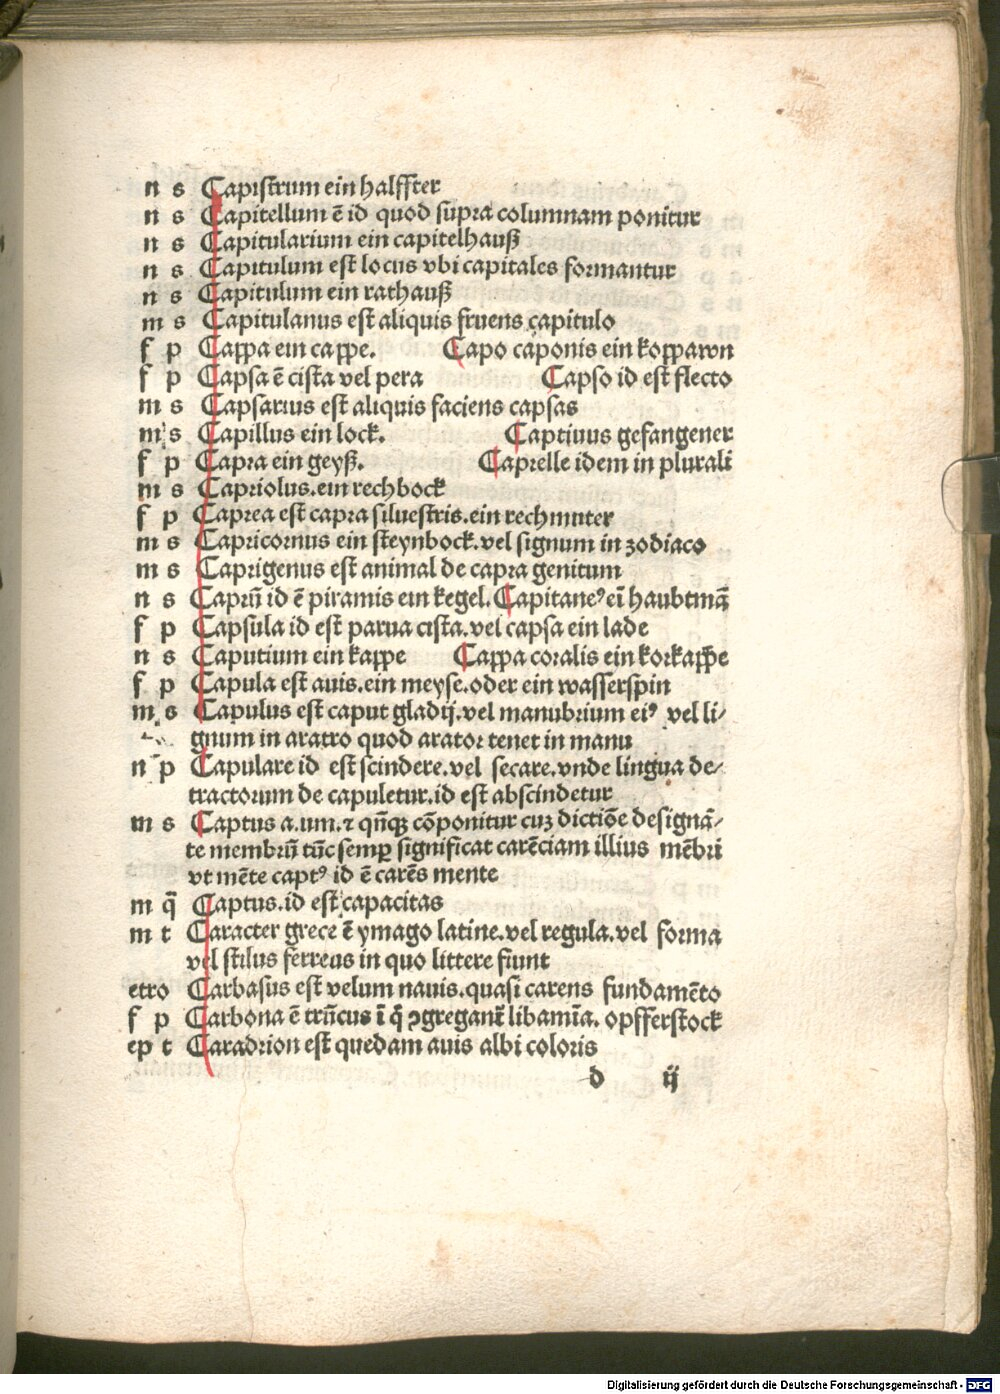 n s Capistrum ein halffter
n s Capitellum ē id quod supra columnam ponitur
n s Capitularium ein capitelhauß
n s Capitulum est locus vbi capitales formantur
n s Capitulum ein rathauß
m s Capitulanus est aliquis fruens capitulo
f p Cappa ein cappe. Capo caponis ein koppawn
f p Capsa ē cista vel pera Capso id est flecto
m s Capsarius est aliquis faciens capsas
m s Capillus ein lock. Captiuus gefangener
f p Capra ein geyß. Caprelle idem in plurali
m s Capriolus.ein rechbock
f p Caprea est capra siluestris.ein rechmuter
m s Capricornus ein steynbock.vel signum in zodiaco
m s Caprigenus est animal de capra genitum
n s Capriū id ē piramis ein kegel. Capitaneꝰ eī haubtmā
f p Capsula id est parua cista.vel capsa ein lade
n s Caputium ein kappe Cappa coralis ein korkappe
f p Capula est auis.ein meyse.oder ein wasserspin
m s Capulus est caput gladij.vel manubrium eiꝰ vel li⸗
gnum in aratro quod arator tenet in manu
n p Capulare id est scindere.vel secare.vnde lingua de⸗
tractorum de capuletur.id est abscindetur
m s Captus a.um.⁊ qn̄qꝫ cōponitur cuꝫ dictiōe designā⸗
te membrū tūc semꝑ significat carēciam illius mēbri
vt mēte captꝰ id ē carēs mente
m q̄ Captus.id est capacitas
m t Caracter grece ē ymago latine.vel regula.vel forma
vel stilus ferreus in quo littere fiunt
etro Carbasus est velum nauis.quasi carens fundamēto
f p Carbona ē trūcus ī q̄ ꝯgregant̄ libamīa. opfferstock
ep t Caradrion est quedam auis albi coloris
d ij
Digitalisierung gefördert durch die Deutsche Forschungsgemeinschaft - DFG